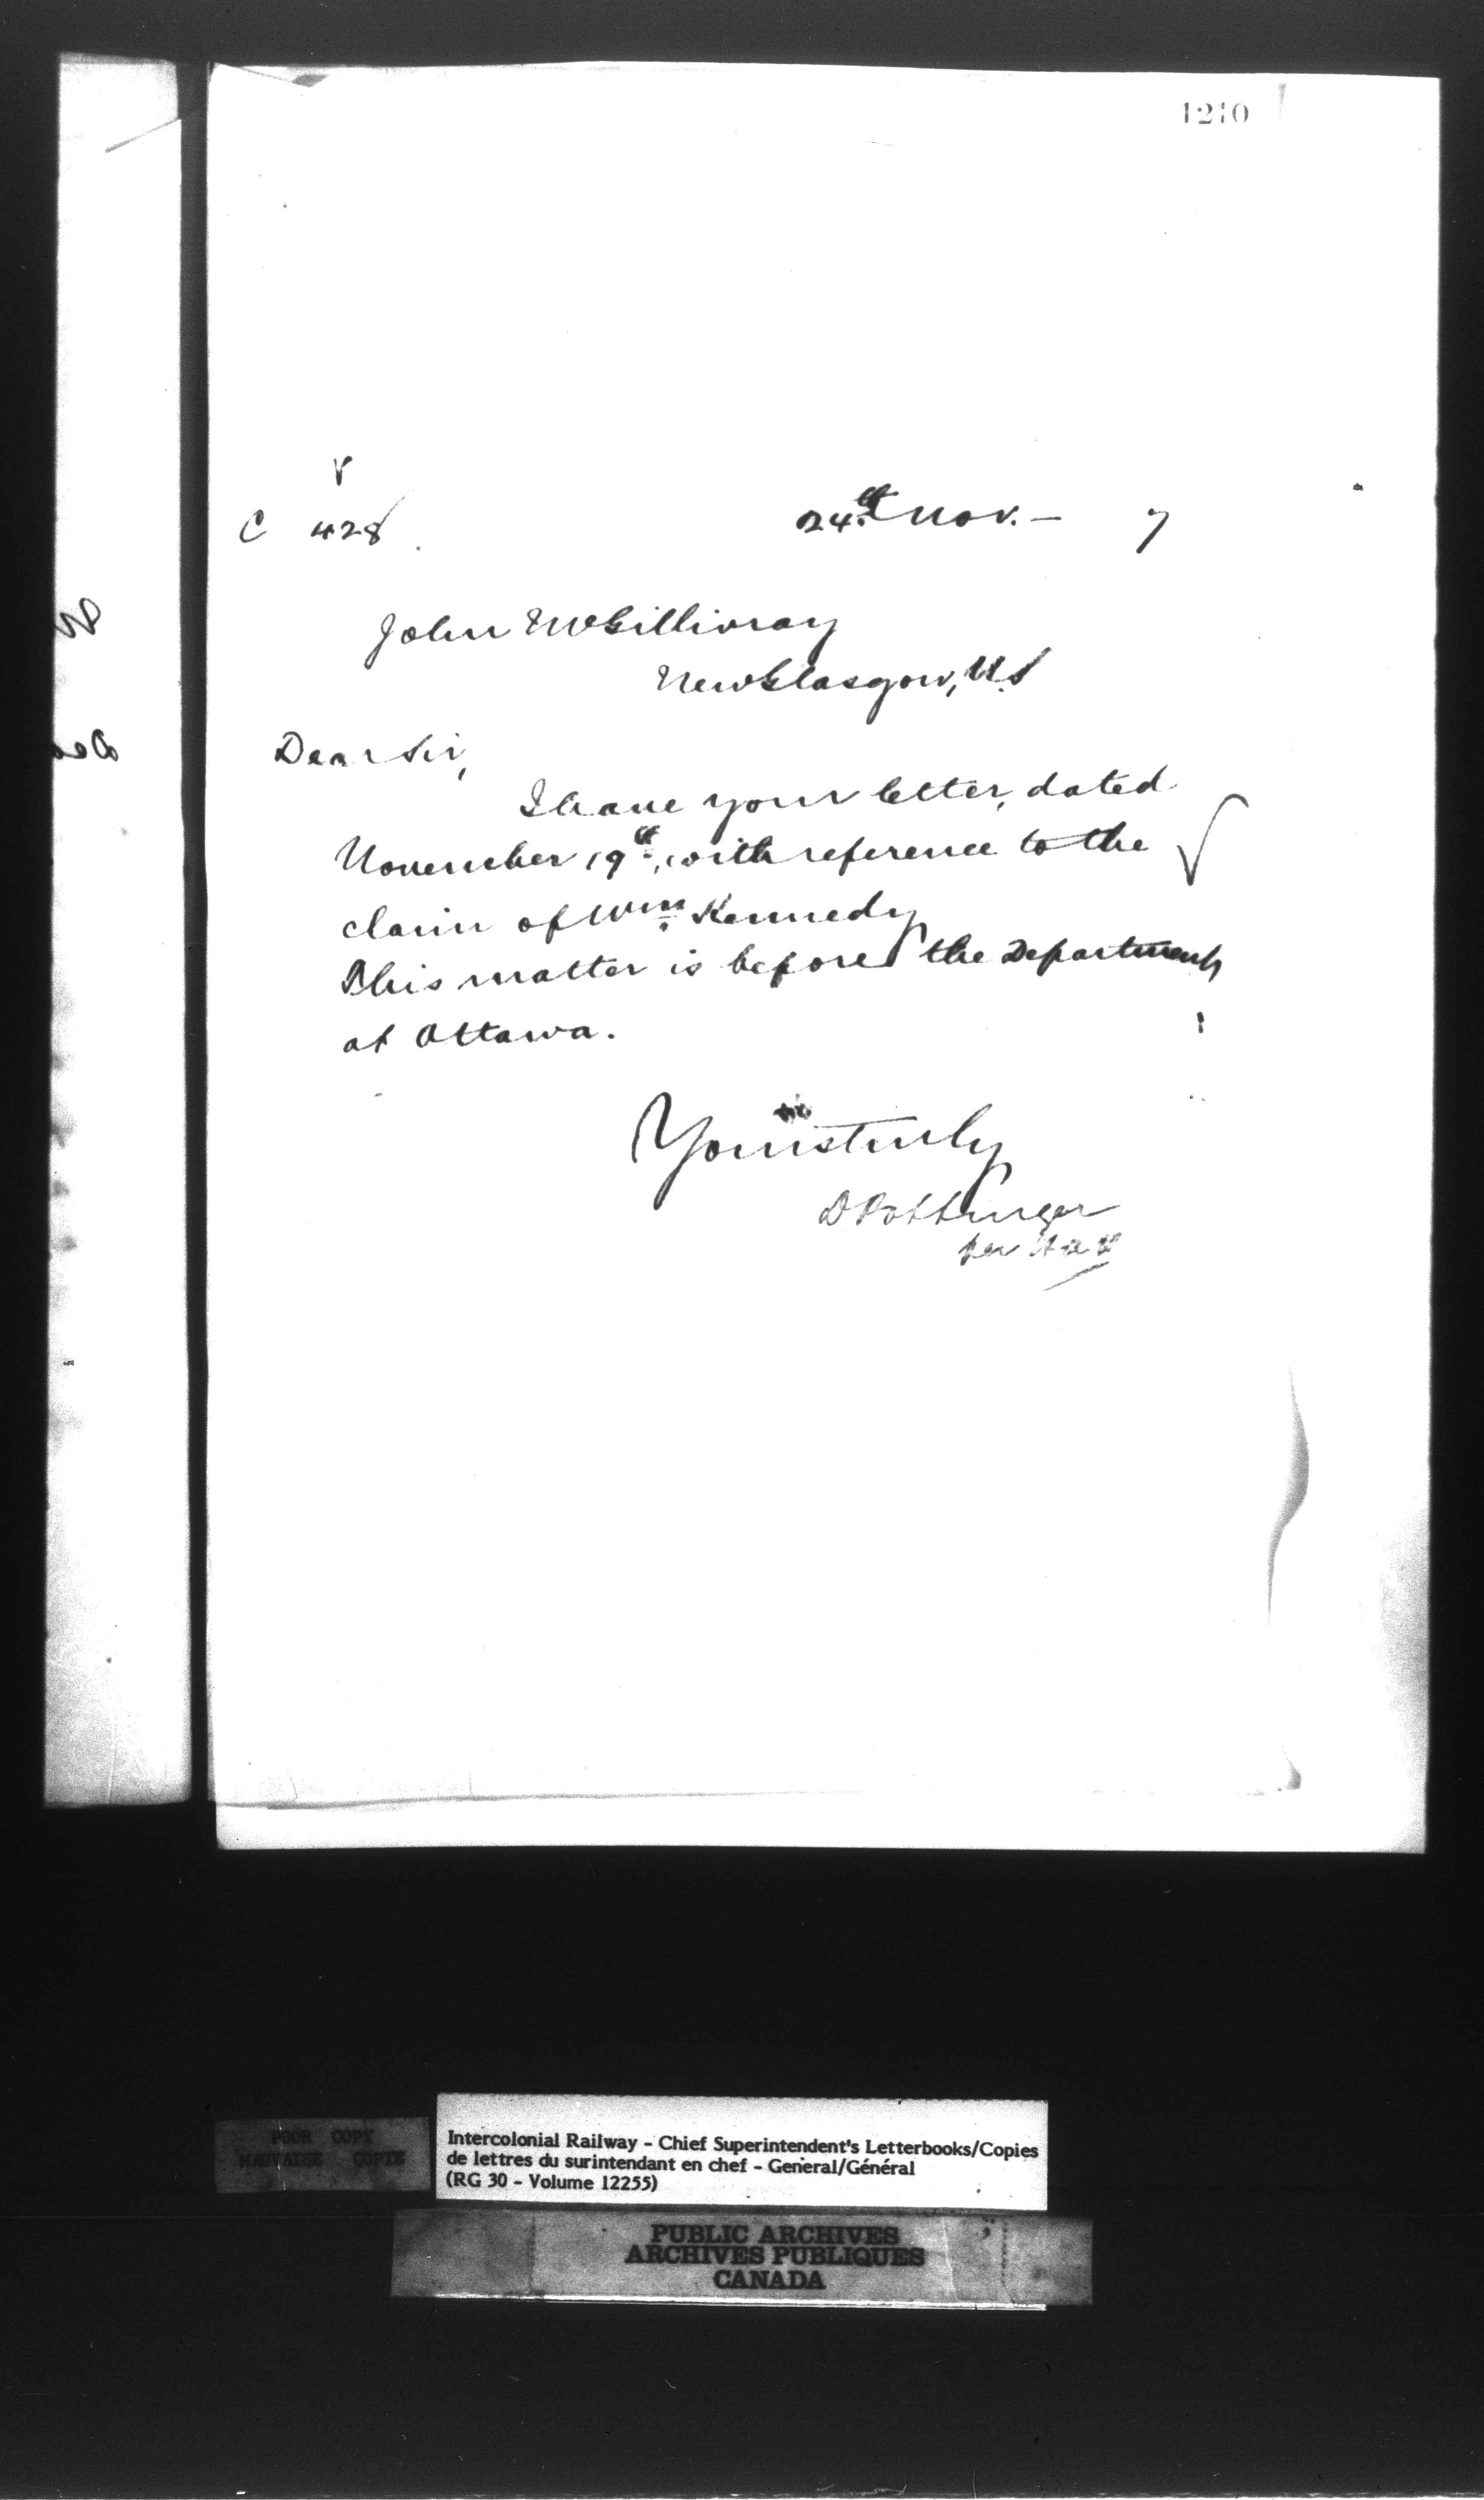 1210
C 428
24th Nov. – 7
John McGillivray
New Glasgow, N.S
Dear Sir,
I have your letter, dated
November 19th, with reference to the
claim of Wm Kennedy
This matter is before the Department
at Ottawa.
Yours truly
D Pottinger
per
POOR COPY
MAUVAISE COPIE
Intercolonial Railway - Chief Superintendent's Letterbooks/Copies
de lettres du surintendant en chef - General/Général
(RG 30 - Volume 12255)
PUBLIC ARCHIVES
ARCHIVES PUBLIQUES
CANADA